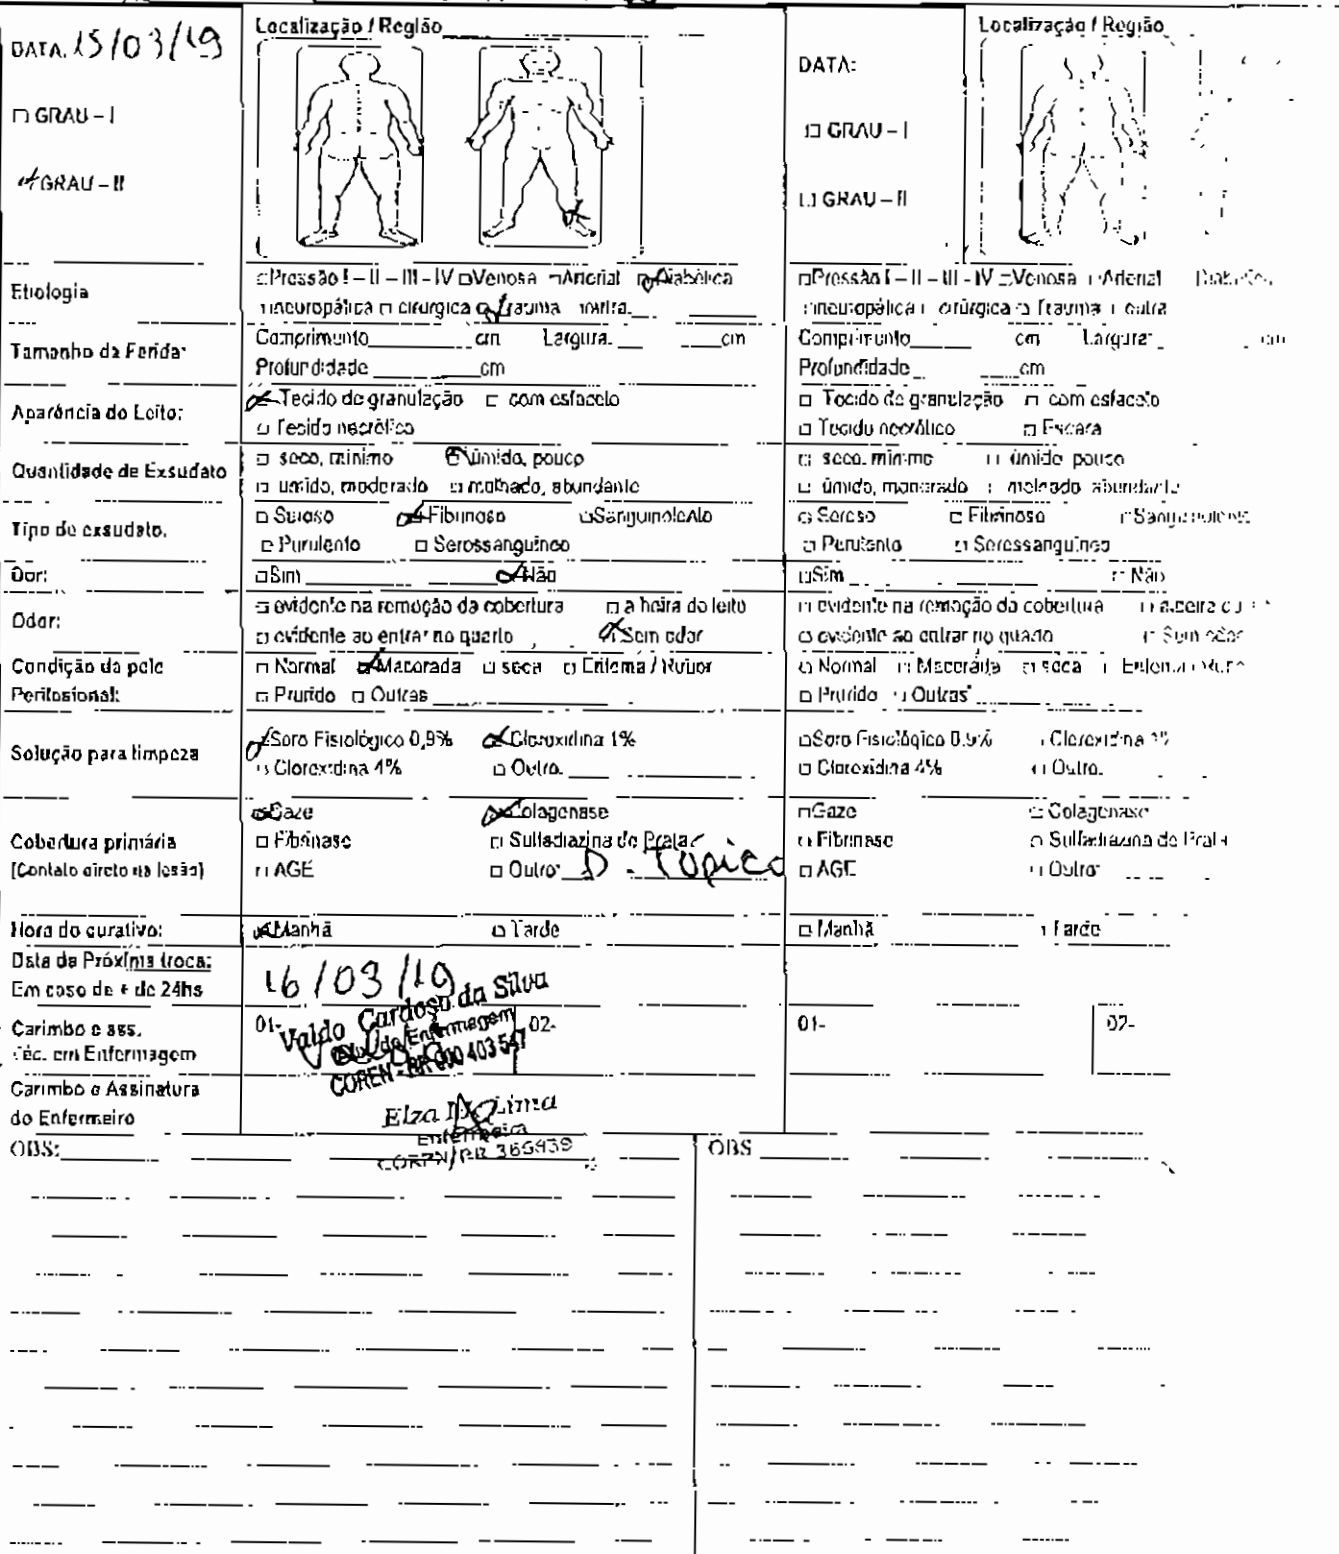 DATA. 15/03/19
Localização / Região
□ GRAU – I
GRAU – II
Etiologia
□Pressão I – II – III – IV □Venosa □Arterial Diabética
□neuropática □ cirúrgica Trauma □outra.
Tamanho da Ferida:
Comprimento cm Largura. cm
Profundidade cm
Aparência do Leito:
Tecido de granulação □ com esfacelo
□ Tecido necrótico
Quantidade de Exsudato
□ seco, mínimo úmido, pouco
□ úmido, moderado □ molhado, abundante
Tipo de exsudato.
□ Seroso Fibrinoso □Sanguinolento
□ Purulento □ Serossanguíneo
Dor:
□Sim Não
Odor:
□ evidente na remoção da cobertura □ a beira do leito
□ evidente ao entrar no quarto Sem odor
Condição da pele
Perilesional:
□ Normal Macerada □ seca □ Eritema / Rubor
□ Prurido □ Outras
Solução para limpeza
Soro Fisiológico 0,9% Clorexidina 1%
□ Clorexidina 4% □ Outro.
Cobertura primária
(Contato direto na lesão)
Gaze Colagenase
□ Fibrinase □ Sulfadiazina de Prata
□ AGE □ Outro: D. Tópico
Hora do curativo:
Manhã □ Tarde
Data da Próxima troca:
Em caso de + de 24hs
16/03/19
Carimbo e ass.
Téc. em Enfermagem
01-
Valdo Cardoso da Silva
de Enfermagem
COREN - RR 000 403 547
02-
Carimbo e Assinatura
do Enfermeiro
Elza Lima
Enfermeira
COREN/RR 366939
OBS:
DATA:
Localização / Região
□ GRAU – I
□ GRAU – II
□Pressão I – II – III – IV □Venosa □Arterial
□neuropática □ cirúrgica □ Trauma □ outra
Comprimento cm Largura: cm
Profundidade cm
□ Tecido de granulação □ com esfacelo
□ Tecido necrótico □ Escara
□ seco, mínimo □ úmido pouco
□ úmido, moderado □ molhado abundante
□ Seroso □ Fibrinoso
□ Purulento □ Serossanguíneo
□Sim □ Não
□ evidente na remoção da cobertura
□ evidente ao entrar no quarto □ Sem odor
□ Normal □ Macerada □ seca
□ Prurido □ Outras
□Soro Fisiológico 0.9% □ Clorexidina
□ Clorexidina 4% □ Outro.
□Gaze □ Colagenase
□ Fibrinase □ Sulfadiazina de Prata
□ AGE □ Outro
□ Manhã □ Tarde
01- 02-
OBS